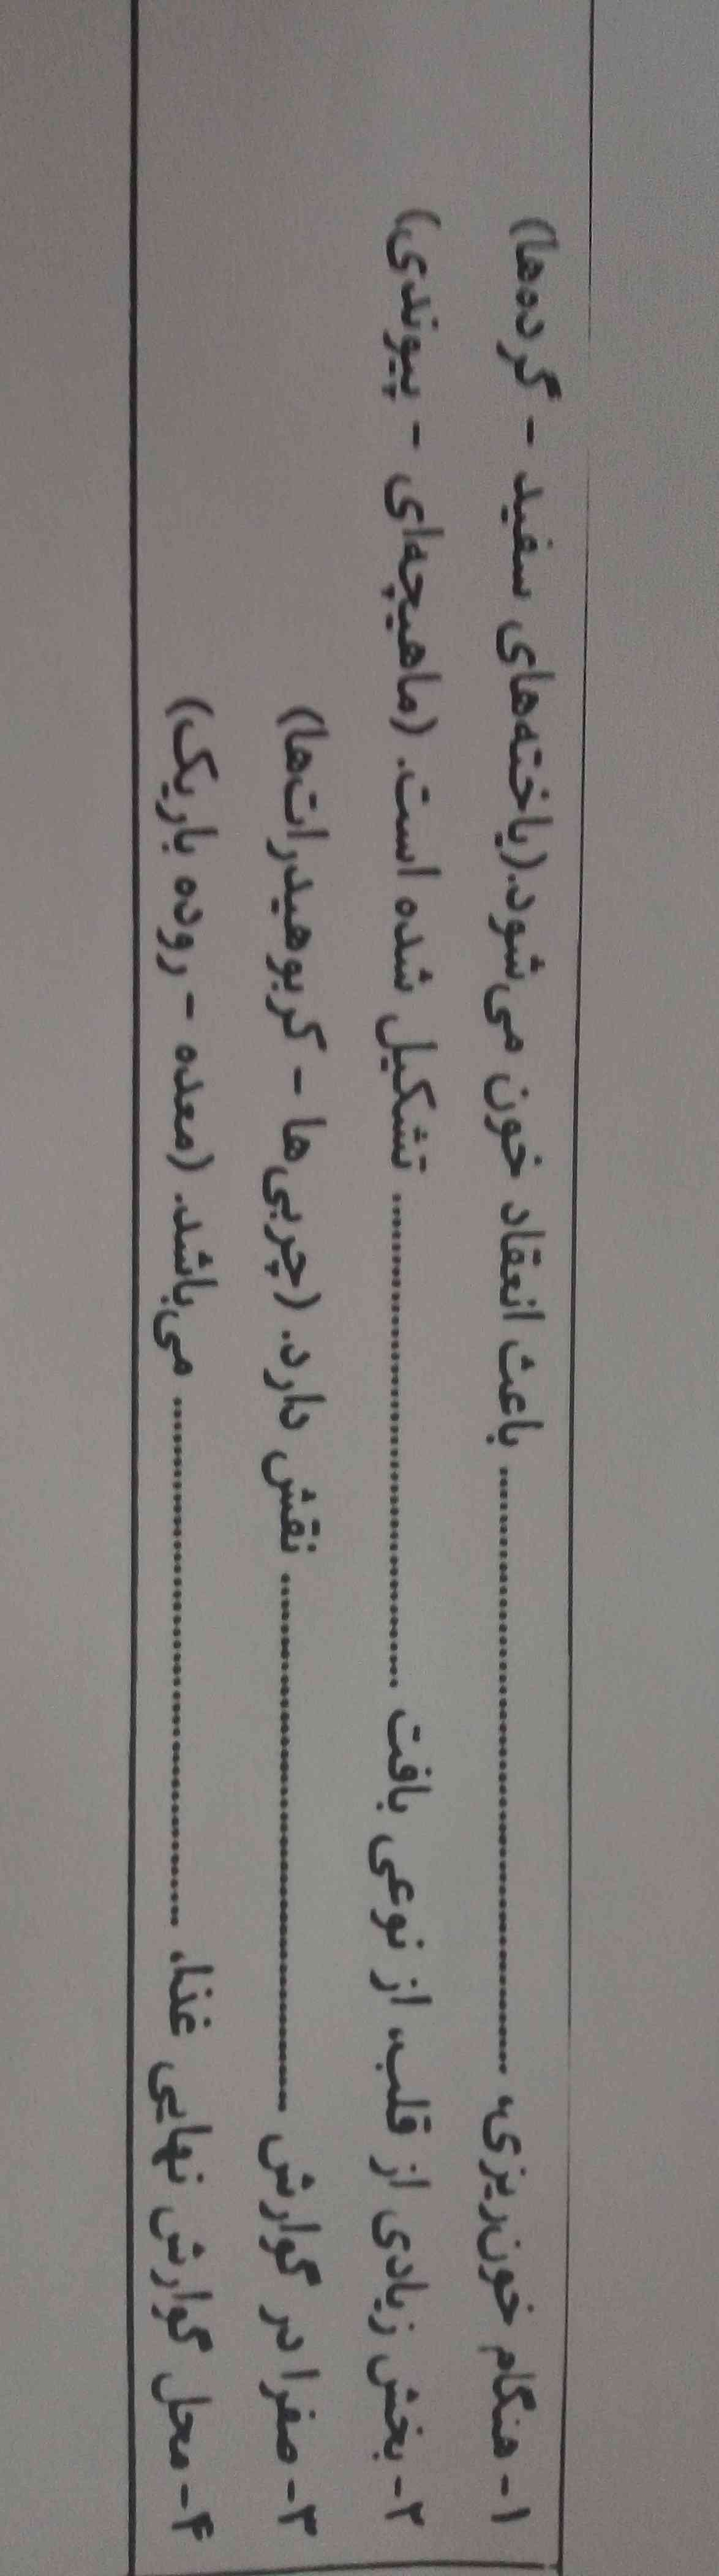 ۱- هنگام خون‌ریزی، .................................................. باعث انعقاد خون می‌شود.(یاخته‌های سفید - گرده‌ها)
۲- بخش زیادی از قلب، از نوعی بافت .................................................. تشکیل شده است. (ماهیچه‌ای - پیوندی)
۳- صفرا در گوارش .................................................. نقش دارد. (چربی‌ها - کربوهیدرات‌ها)
۴- محل گوارش نهایی غذا، .................................................. می‌باشد. (معده - روده باریک)